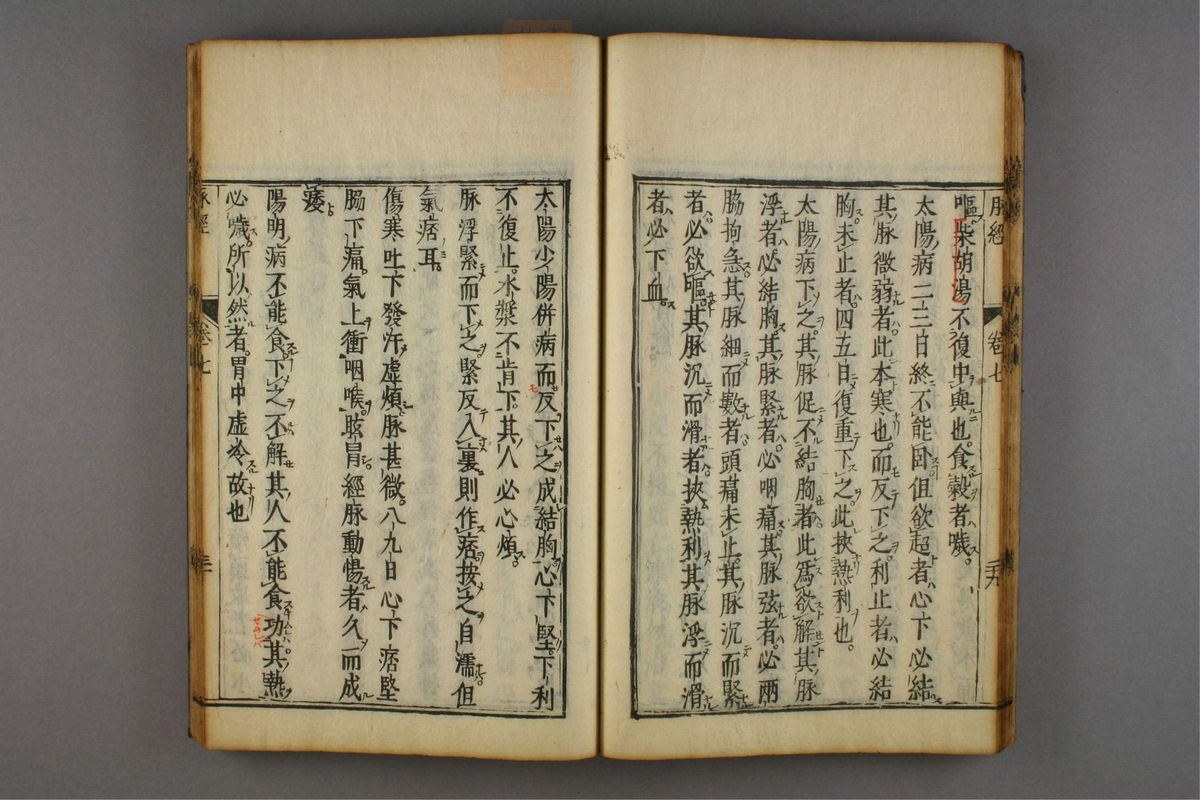 脉經
卷七
嘔柴胡湯不復中與也食穀者噦
太陽病二三日終不能臥但欲起者心下必結
其脉微弱者此本寒也而反下之利止者必結
胸未止者四五日復重下之此挾熱利也
太陽病下之其脉促不結胸者此爲欲解其脉
浮者必結胸其脉緊者必咽痛其脉弦者必兩
脇拘急其脉細而數者頭痛未止其脉沉而緊
者必欲嘔其脉沉而滑者挾熱利其脉浮而滑
者必下血
太陽少陽併病而反下之成結胸心下堅下利
不復止水漿不肯下其人必心煩
脉浮緊而下之緊反入裏則作痞按之自濡但
氣痞耳
傷寒吐下發汗虛煩脉甚微八九日心下痞堅
脇下痛氣上衝咽喉眩冒經脉動惕者久而成
痿
陽明病不能食下之不解其人不能食功其熱
必噦所以然者胃中虚冷故也
脉經
卷七